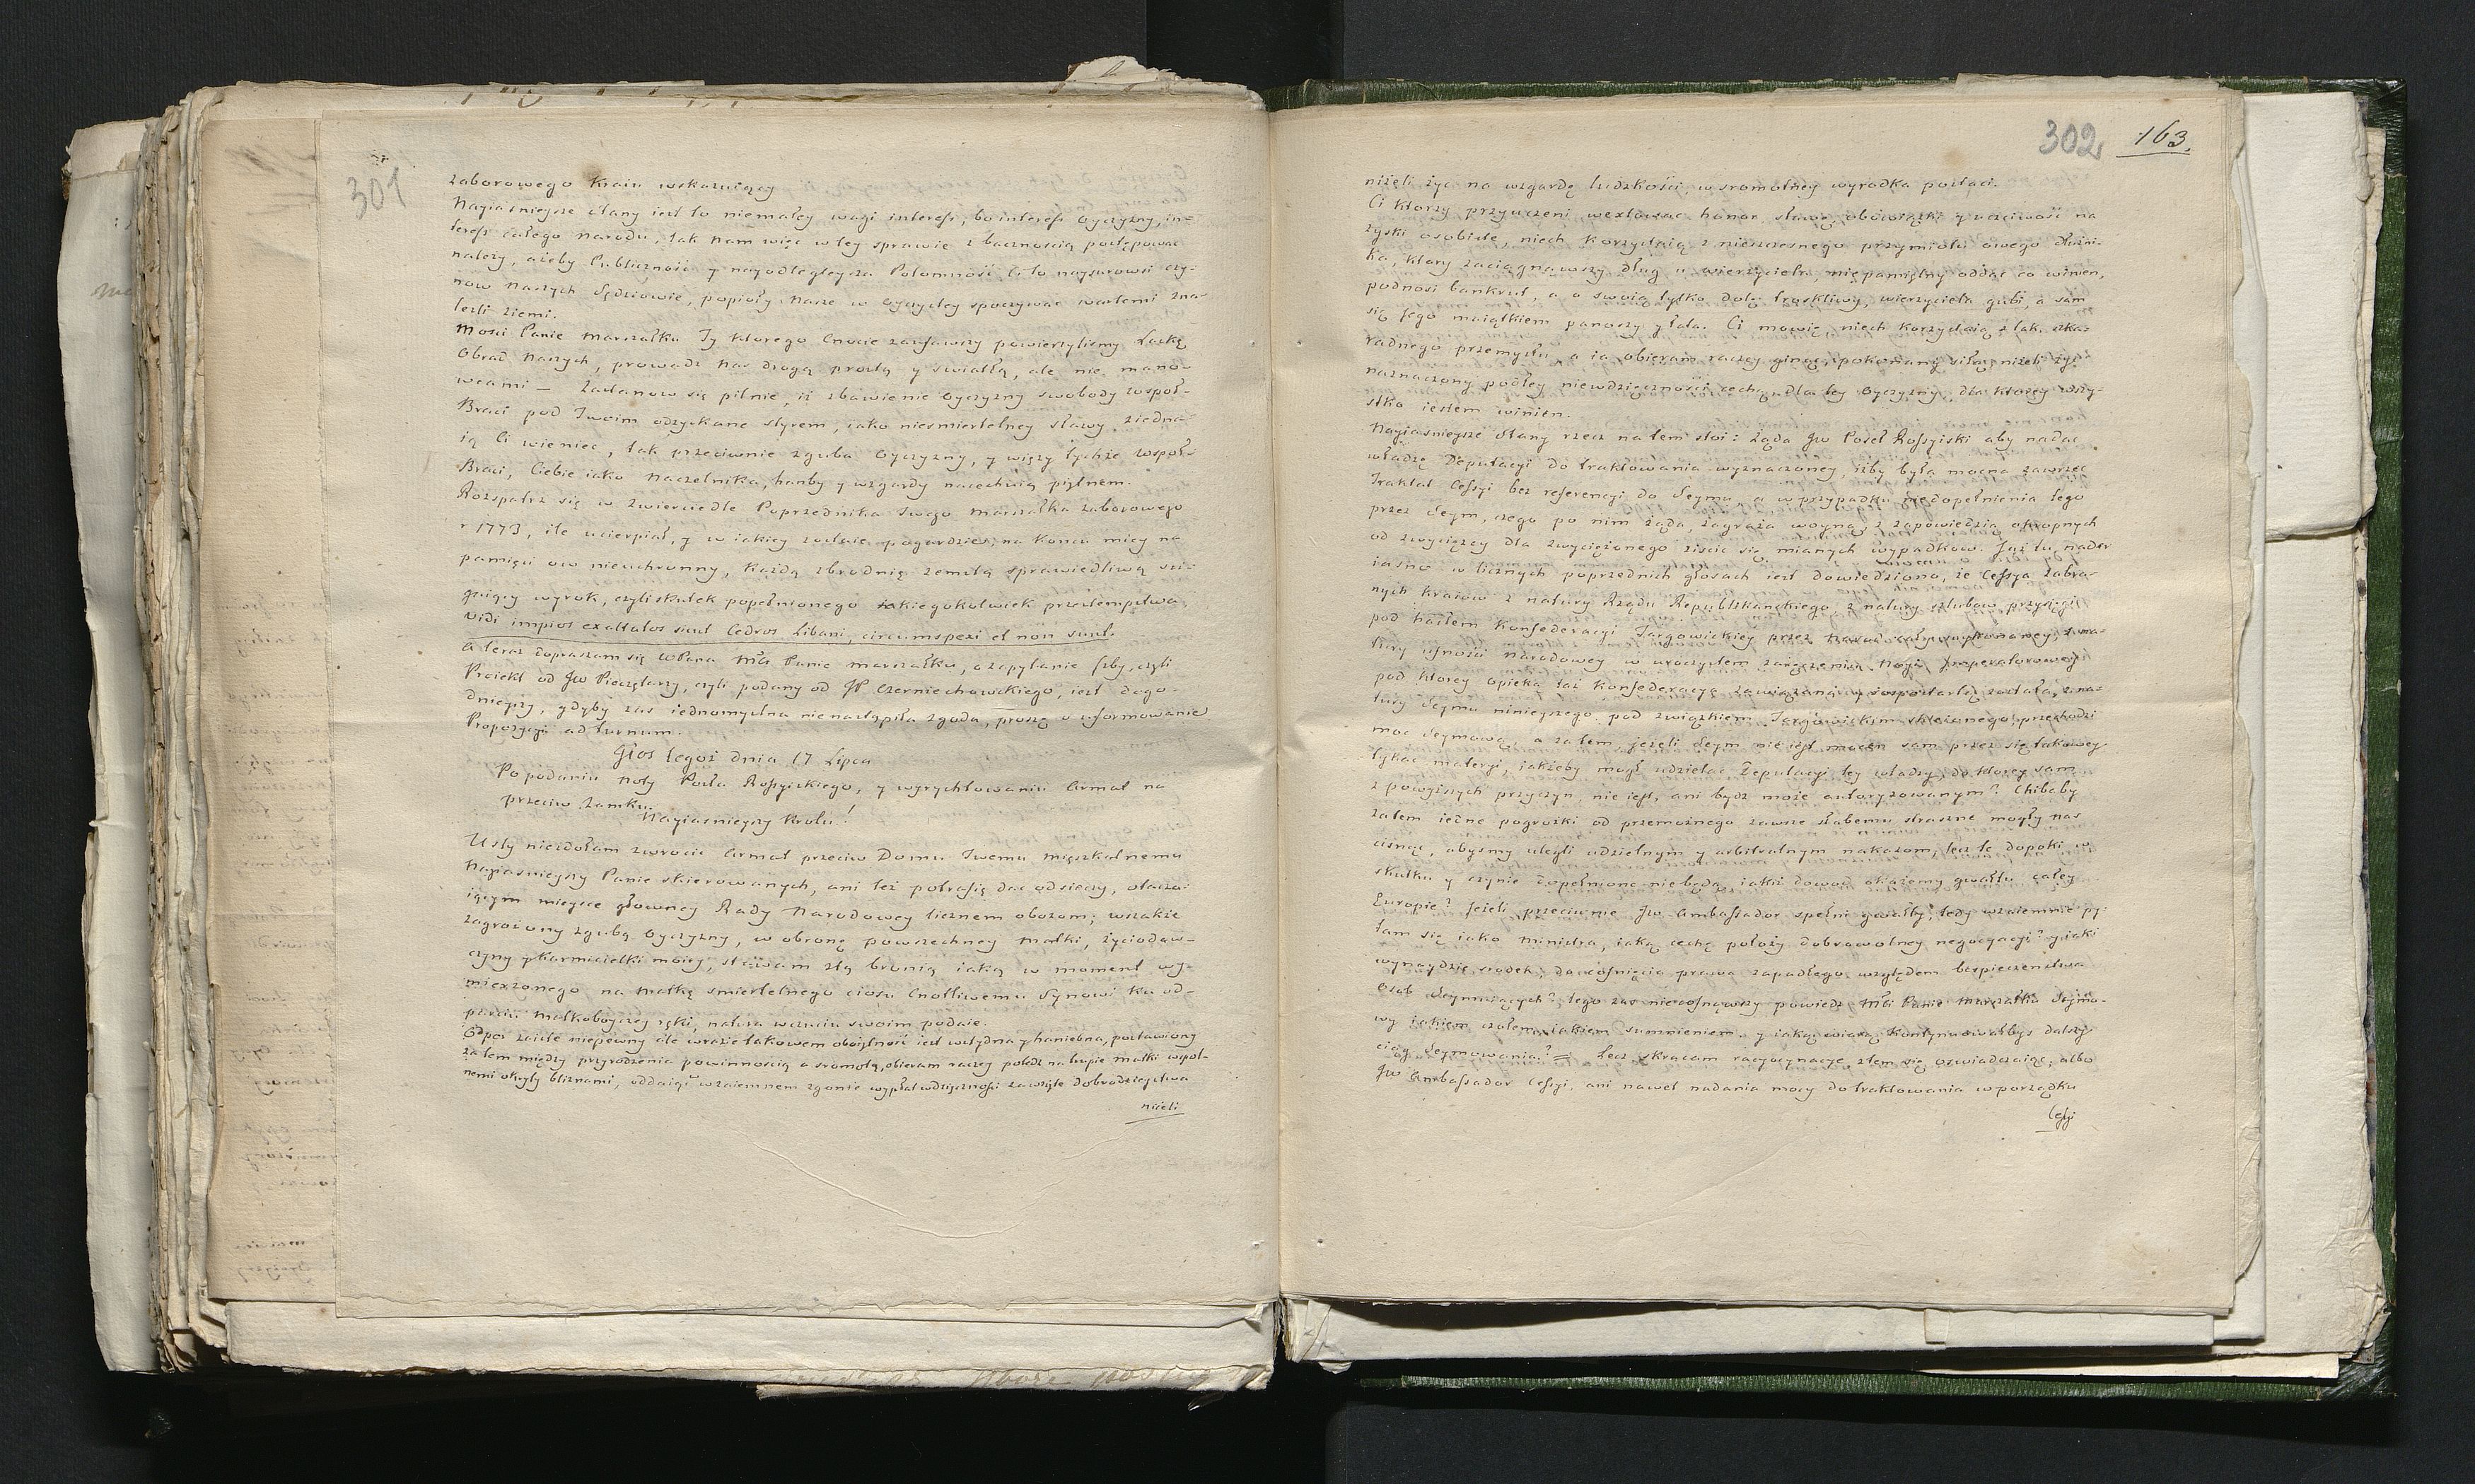 301
zaborowego Kraiu wskazuiący
Nayiasnieysze Stany iest to niemałey wagi interess, bo interess Oyczyzny, in-
teress całego Narodu, tak Nam więc w tey sprawie z bacznoscią postępować
należy, ażeby Publiczność y nayodlegleysza Potomność Ci to naysurowsi czy-
now Naszych Sędziowie, popioły Nasze w Oyczystey spoczywać wartemi zna-
lezli ziemi.
Mosci Panie Marszałku Ty ktorego Cnocie zaufawszy powierzylismy Laskę
Obrad Naszych, prowadz Nas drogą prostą y swiatłą, ale nie mano-
wcami — Zastanow się pilnie, iż zbawienie Oyczyzny swobody wspoł-
Braci pod Twoim odzyskane styrem, iako niesmiertelney sławy ziedna-
ią Ci wieniec, tak przeciwnie zguba Oyczyzny, y więzy tychże wspoł-
Braci, Ciebie iako Naczelnika, hanby y wzgardy nacechuią piętnem.
Rozspatrz się w zwierciedle Poprzednika twego Marszałka zaborowego
r 1773, ile ucierpiał, y w iakiey zostaie pogardzie, na koncu miey na
pamięci ow nieuchronny, każdą zbrodnię zemstą sprawiedliwą sci-
gaiący wyrok, czyli skutek popełnionego iakiegokolwiek przestempstwa,
Vidi impios exaltatos sicut Cedros Libani, circumspexi et non sunt.
A teraz dopraszam się WPana Mci Panie Marszałku, o zapytanie Izby, czyli
Proiekt od JW Pieczętarzy, czyli podany od JP Czerniechowskiego, iest dogo-
dnieyszy, gdyby zas iednomyslna nienastąpiła zgoda, proszę o uformowanie
Propozycyi ad turnum.
Głos tegoż dnia 17 Lipca
Po podaniu Noty Posła Rossyiskiego, y wyrychtowaniu Armat na
przeciw Zamku.
Nayiasnieyszy Krolu!
Usty niezdołam zwrocić Armat przeciw Domu Twemu mięszkalnemu
Nayiasnieyszy Panie skierowanych, ani też potrafię dać odsieczy, otacza-
iącym mieysce głowney Rady Narodowey licznem obozom; wszakże
zagrożony zgubą Oyczyzny, w obronę powszechney Matki, życiodaw-
czyny y karmicielki moiey, stawam tą bronią iaką w moment wy-
mierzonego na Matkę smiertelnego ciosu Cnotliwemu Synowi ku od-
parciu Matkoboyczey ręki, natura wczuciu swoim podaie.
Odpor zaiste niepewny ale wrazie takowem oboiętność iest wstydna y haniebna, postawiony
zatem między przyrodzenia powinnością a sromotą, obieram raczey poledz na trupie Matki wspol-
nemi okryty bliznami, oddaiąc wzaiemnem zgonie wypłat wdzięczności zawzięte dobrodzieystwa
niżeli
302 163.
niżeli żyć na wzgardę ludzkości, w sromotney wyrodka postaci.
Ci ktorzy przyuczeni wexlować honor, sławę, obowiązki y uczciwość na
zyski osobiste, niech korzystaią z nieszczesnego przymiotu owego dłużni-
ka, ktory zaciągnawszy dług u wierzyciela, niepamiętny oddać co winien,
podnosi bankrut, a o swoią tylko dolę troskliwy, wierzyciela gubi, a sam
się Jego maiątkiem panoszy y łata. Ci mowię, niech korzystaią z tak szka-
radnego przemysłu, a ia obieram raczey ginąć, pokonany siłą, niżeli żyć
naznaczony podłey niewdzięczności cechą, dla tey Oyczyzny, dla ktorey wszy-
stko iestem winien.
Nayiasnieysze Stany rzecz na tem stoi: żąda JW Poseł Rossyiski aby nadać
władzę Deputacyi do traktowania wyznaczoney, iżby była mocna zawrzeć
Traktat Cessyi bez referencyi do Seymu, a w przypadku niedopełnienia tego
przez Seym, czego po nim żąda, zagraża woyną, z zapowiedzią okropnych
od zwycięzcy dla zwyciężonego ziścić się mianych wypadkow. Już tu nader
iasno w licznych poprzednich głosach iest dowiedziono, że Cessya zabra-
nych kraiow z natury Rządu Republikanckiego, z natury szlubow przysięgi
pod hasłem Konfederacyi Targowickiey przez Narod cały wykonaney, z na-
tury ufności Narodowey w uroczystem zaręczeniu Nayi Imperatorowey
pod ktorey opieką taż Konfederacya zawiązaną y rozpostartą została, z na-
tury Seymu ninieyszego pod związkiem Targowickim złożonego przechodzi
moc Seymową, a zatem jeżeli Seym nie iest mocen sam przez się takowey
tykać materyi, jakżeby mogł udzielać Deputacyi tey władzy, do ktorey sam
z powyższych przyczyn nie iest, ani bydz może autoryzowanym? Chibaby
zatem iedne pogrożki od przemożnego zawsze słabemu straszne mogły nas
cisnąć, abysmy ulegli udzielnym y arbitralnym nakazom, lecz te dopoki w
skutku y czynie dopełnione niebędą, iakiż dowod okażemy gwałtu całey
Europie? Jeżeli przeciwnie JW Ambassador spełni gwałty, tedy wzaiemnie py-
tam się iako Ministra, iaką cechę położy dobrowolney negocyacyi? y iaki
wynaydzie srodek, do cofnięcia prawa zapadłego względem bezpieczenstwa
Osob Seymuiących? tego zas niecofnąwszy powiedz Mci Panie Marszałku Seymo-
wy iakiem czołem, iakiem sumnieniem, y iaką wiarą kontynuowałbyś dalszy
ciąg Seymowania? = Lecz skracam racyocynacye, z tem się oswiadczaiąc; albo
JW Ambassador Cessyi, ani nawet nadania mocy do traktowania w porządku
Cessyi